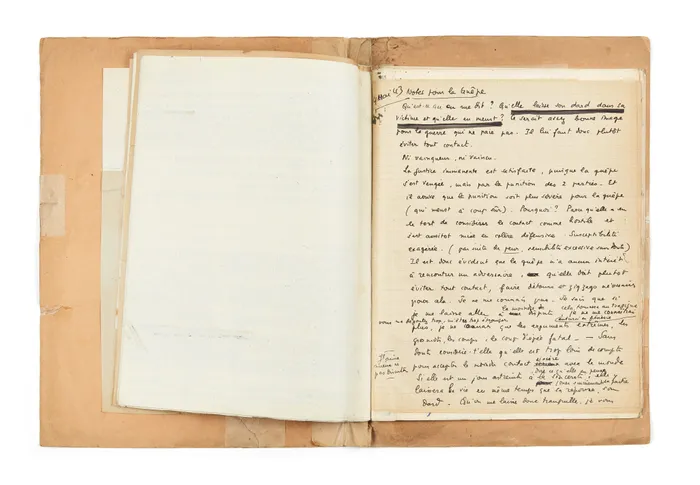 Mai 43 Notes pour la Guêpe
Qu'est-ce qu'on me dit ? Qu'elle laisse son dard dans sa
victime et qu'elle en meurt ? Ce serait assez bonne image
pour la guerre qui ne paie pas. Il lui faut donc plutôt
éviter tout contact.
Ni vainqueur, ni vaincu.
La justice immanente est satisfaite, puisque la guêpe
s'est vengée, mais par la punition des 2 parties. Et
il arrive que la punition soit plus sévère pour la guêpe
(qui meurt à coup sûr). Pourquoi ? Parce qu'elle a eu
le tort de considérer le contact comme hostile et
s'est aussitôt mise en colère défensive. Susceptibilité
exagérée. (par suite de peur, sensibilité excessive sans doute)
Il est donc évident que la guêpe n'a aucun intérêt
à rencontrer un adversaire, qu'elle doit plutôt
éviter tout contact, faire détours et zigzags nécessaires
pour cela. Je me connais, Je sais que si
je me laisse aller à la moindre dispute, cela tournera au tragique
je ne me connaîtrai
plus, je ne que les arguments extrêmes, les
le coup d'épée fatal — Sans
doute considère-t-elle qu'elle est trop loin de compte
pour accepter le moindre contact avec le monde
Si elle est un jour astreinte à la sincérité, elle y
laissera la vie en même temps que sa réponse, son
dard. — Qu'on me laisse donc tranquille, je vous
J'aime
mieux ne
pas discuter